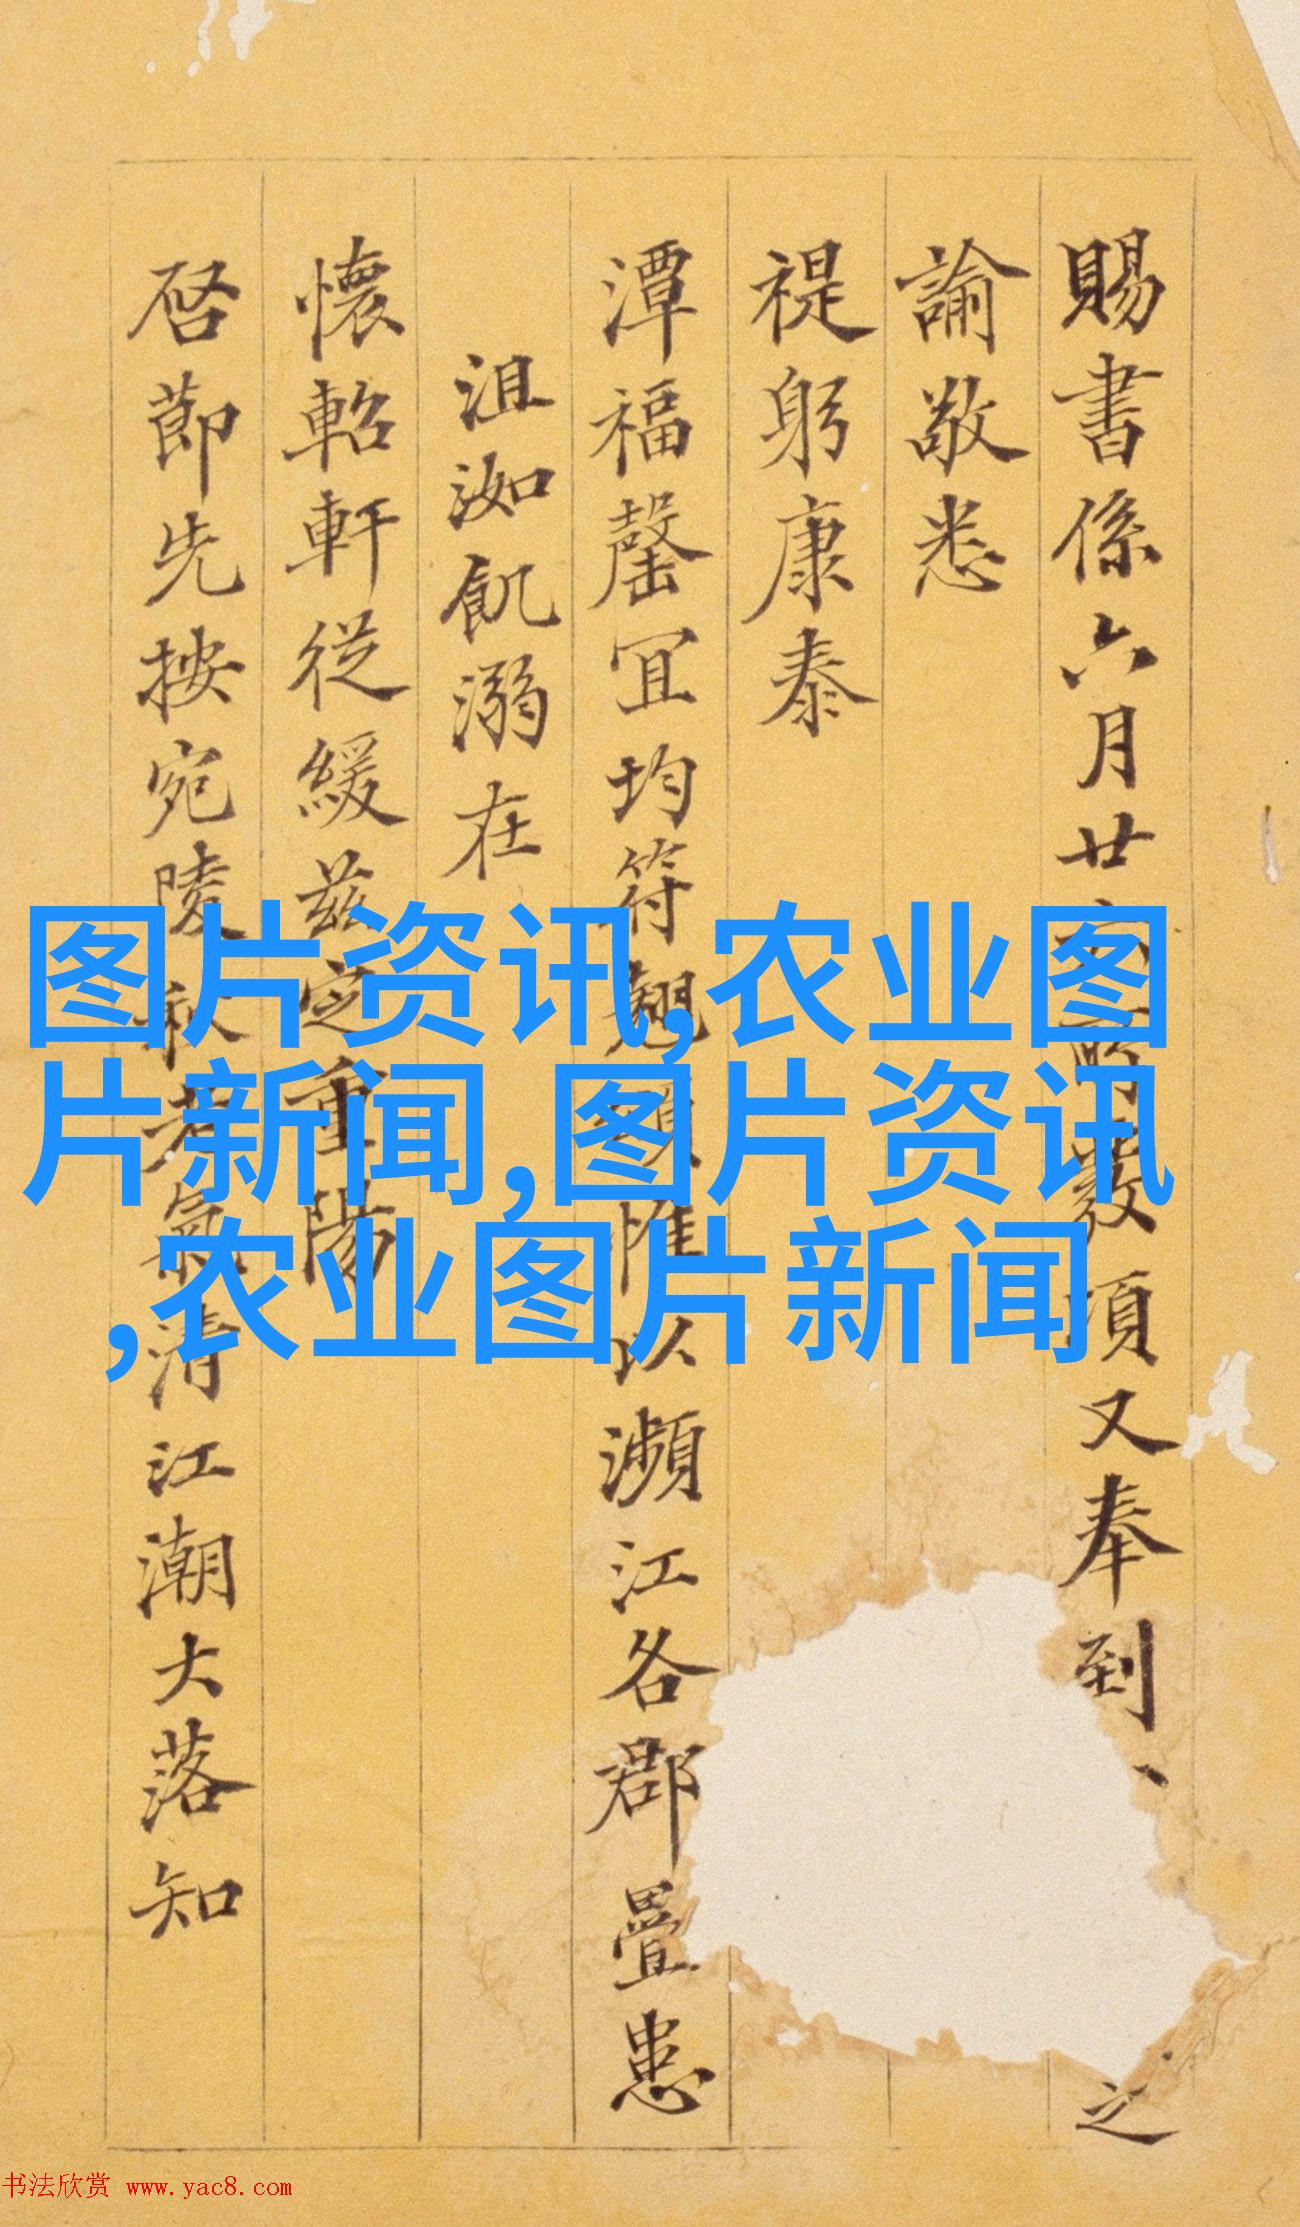 賜書係六月廿
項又奉到
之
諭敬悉
禔躬康泰
潭福罄宜均符
以瀕江各郡疊患
沮洳飢溺在
懷軺軒從緩茲定重陽
啓節先按宛陵秋
氣清江潮大落知
图片资讯,农业图
片新闻,图片资讯
,农业图片新闻
书法欣赏 www.yac8.com